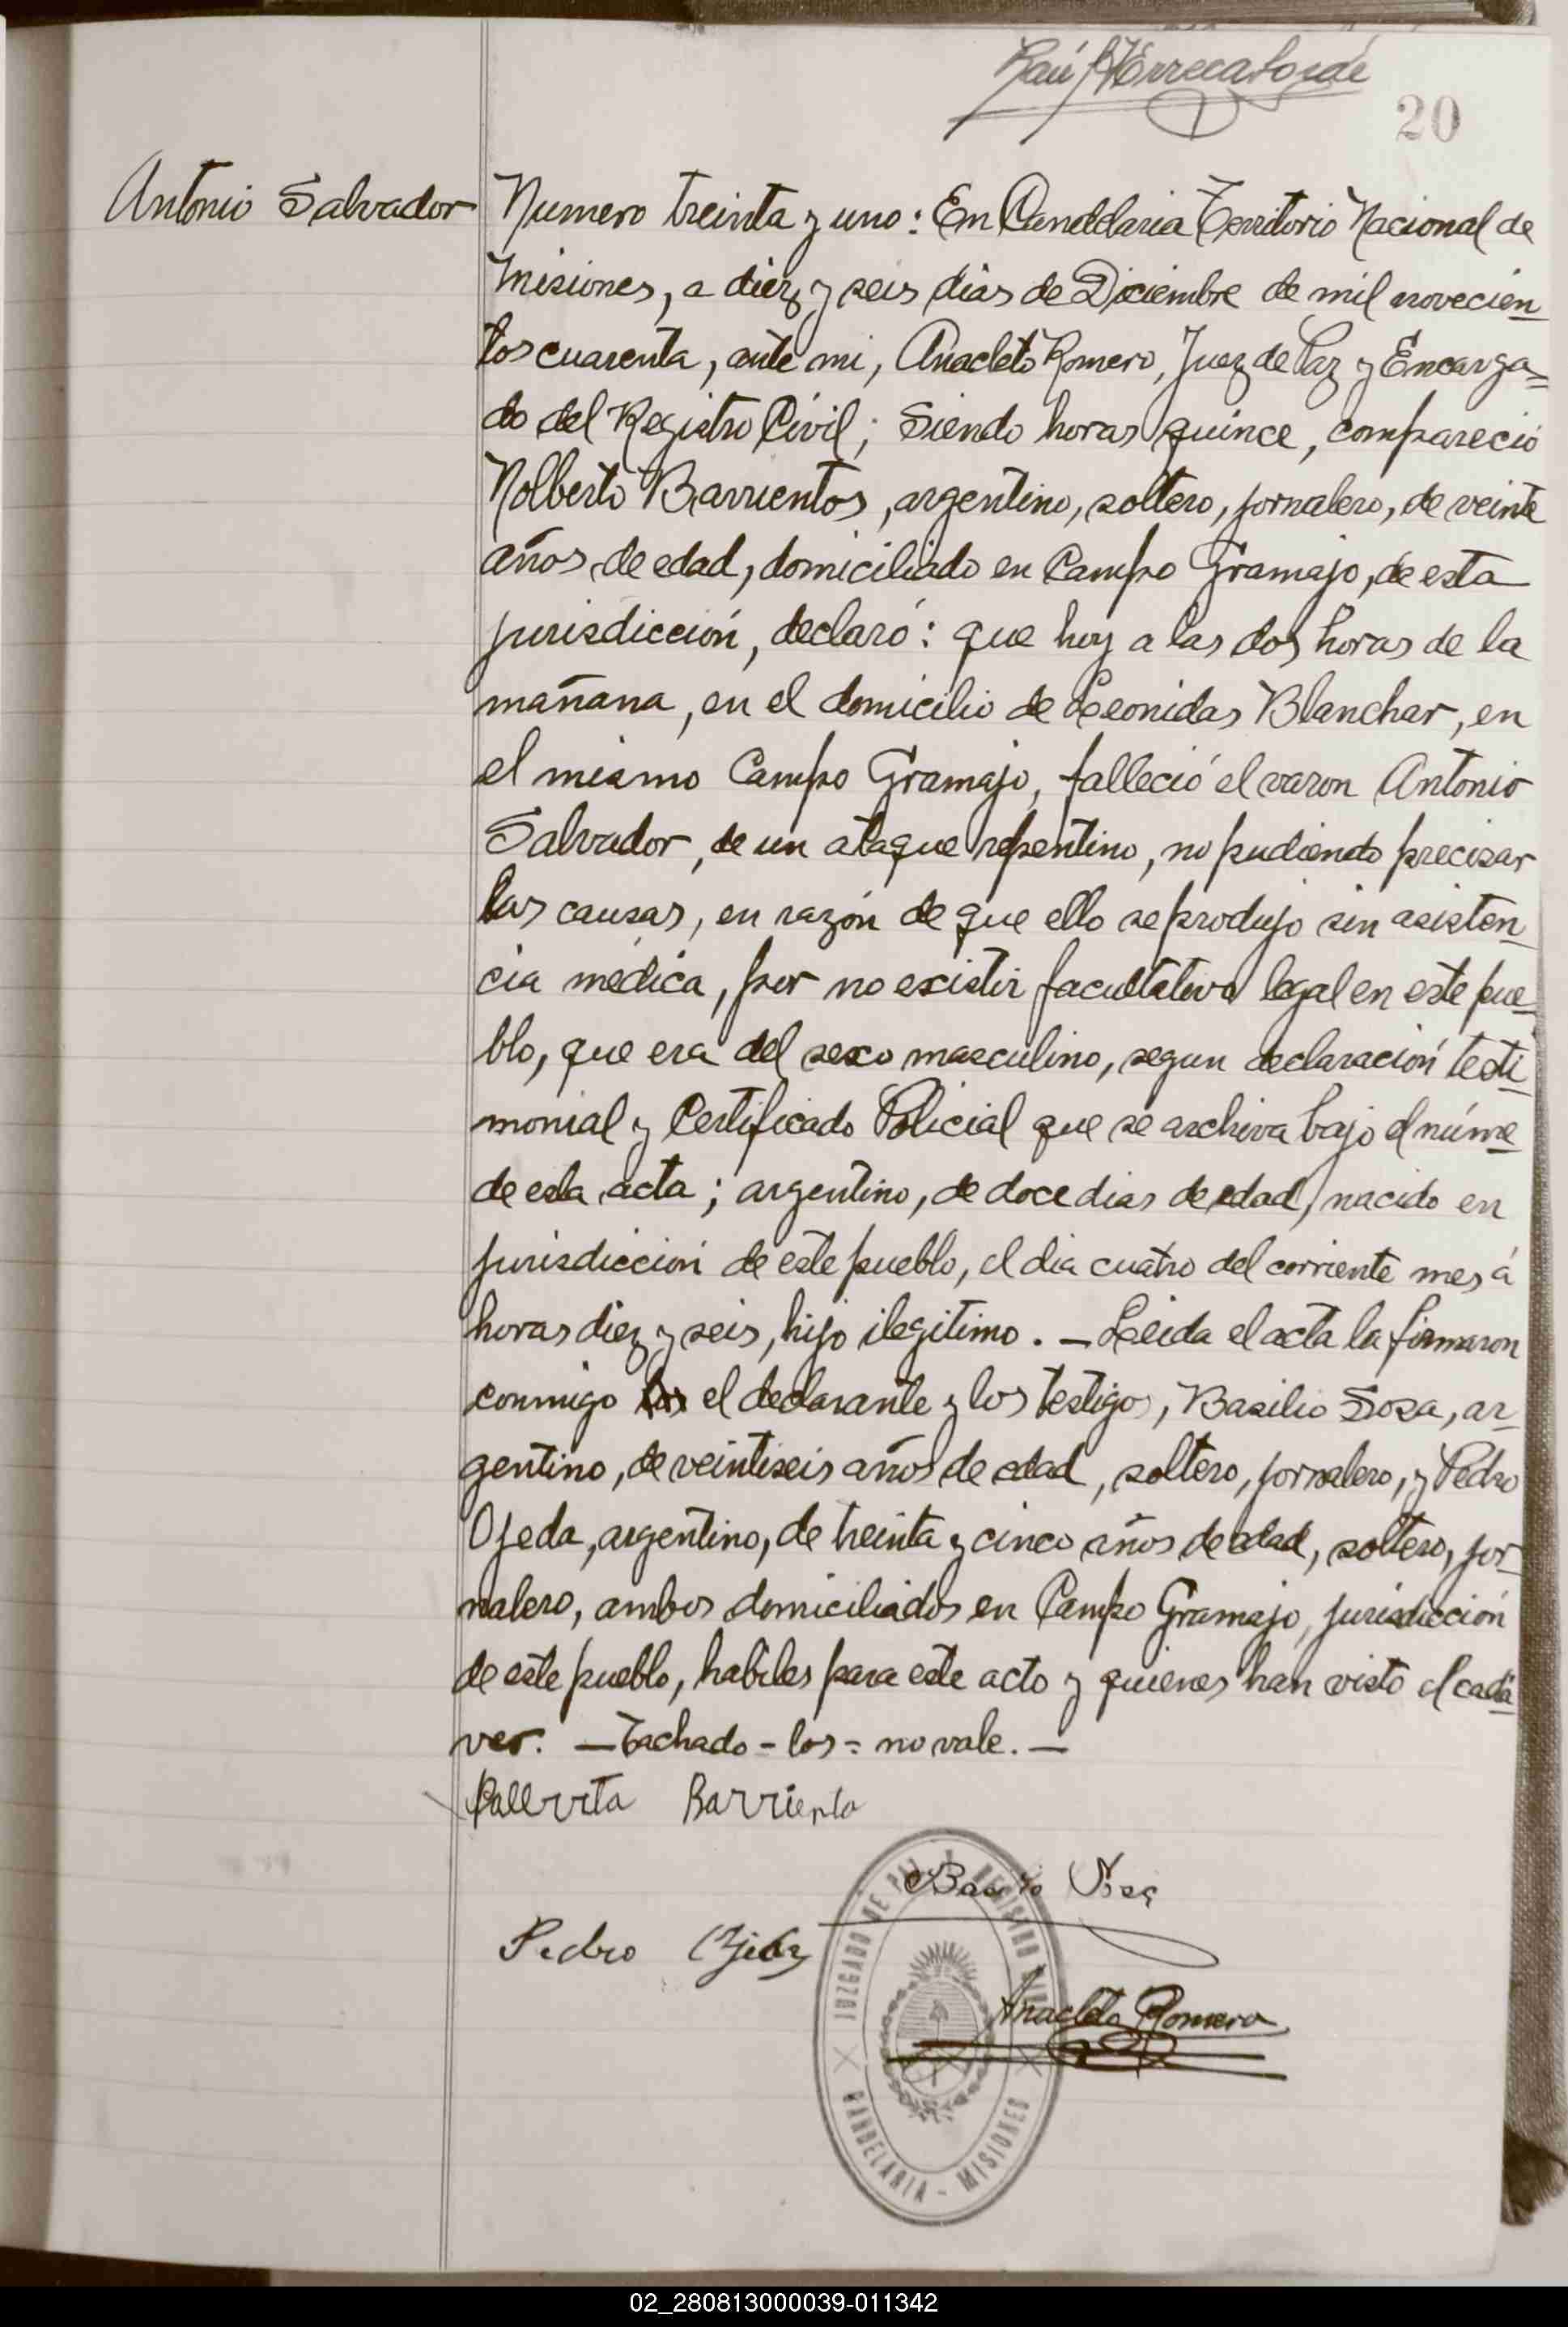 20
Antonio Salvador
Numero treinta y uno: En Candelaria Territorio Nacional de
Misiones, a diez y seis dias de Diciembre de mil novecien
tos cuarenta, ante mi, Anacleto Romero, Juez de Paz y Encarga=
do del Registro Civil; Siendo horas quince, compareció
Nolberto Barrientos, argentino, soltero, jornalero, de veinte
años de edad, domiciliado en Campo Gramajo, de esta
jurisdicción, declaró: que hoy a las dos horas de la
mañana, en el domicilio de Leonidas Blanchar, en
el mismo Campo Gramajo, falleció el varon Antonio
Salvador, de un ataque repentino, no pudiendo precisar
las causas, en razón de que ello se produjo sin asisten
cia médica, por no existir facultativo legal en este pue
blo, que era del sexo masculino, segun declaración testi
monial y Certificado Policial que se archiva bajo el núme
de esta acta; argentino, de doce dias de edad, nacido en
jurisdicción de este pueblo, el dia cuatro del corriente mes á
horas diez y seis, hijo ilegitimo. — Leida el acta la firmaron
conmigo los el declarante y los testigos, Basilio Sosa, ar
gentino, de veintiseis años de edad, soltero, jornalero, y Pedro
Ojeda, argentino, de treinta y cinco años de edad, soltero, jor
nalero, ambos domiciliados en Campo Gramajo, jurisdicción
de este pueblo, habiles para este acto y quienes han visto el cadá
ver. — Tachado - los = no vale. —
Barriento
Basilio Sosa
Pedro Ojeda
Anacleto Romero
JUZGADO DE PAZ Y REGISTRO CIVIL
CANDELARIA - MISIONES
02_280813000039-011342